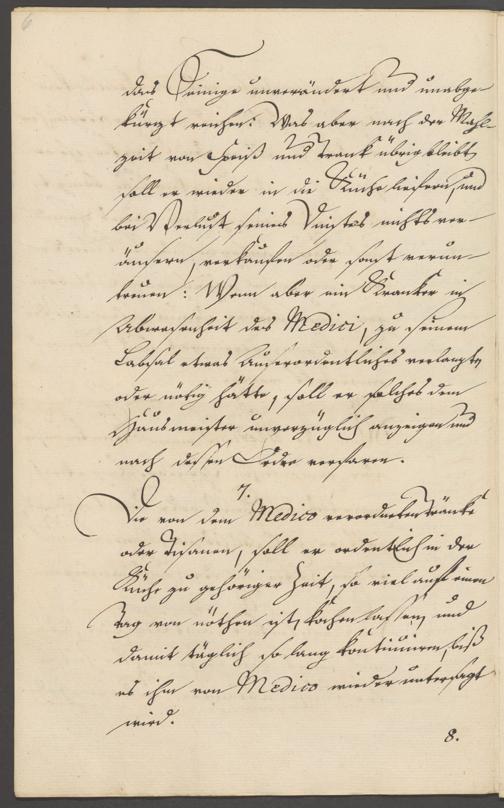 6
das Seinige unverändert und unabge-
kürzt reichen: Was aber nach der Mahl-
zeit von Speiß und Trank übrig bleibt,
soll er wieder in die Küche liefern, und
bei Verlust seines Dinstes nichts ver-
äusern, verkaufen oder sonst verun-
treuen: Wenn aber ein Kranker in
Abwesenheit des Medici, zu seinem
Labsal etwas Auserordentliches verlangte
oder nötig hätte, soll er solches dem
Hausmeister unverzüglich anzeigen und
nach dessen Order verfaren.
7.
Die von dem Medico verordneten Tränke
oder Tisanen, soll er ordentlich in der
Küche zu gehöriger Zeit, so viel auf einen
Tag von nöthen ist, kochen lassen, und
damit täglich so lang kontinuiren, biß
es ihm von Medico wieder untersagt
wird.
8.